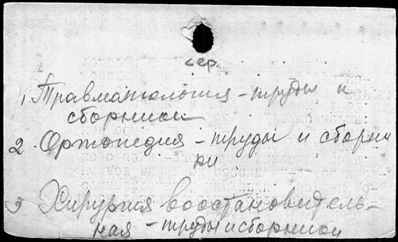 сер.
1. Травматология - труды и
сборники
2. Ортопедия - труды и сборни
ки
3 Хирургия восстановитель-
ная - труды и сборники